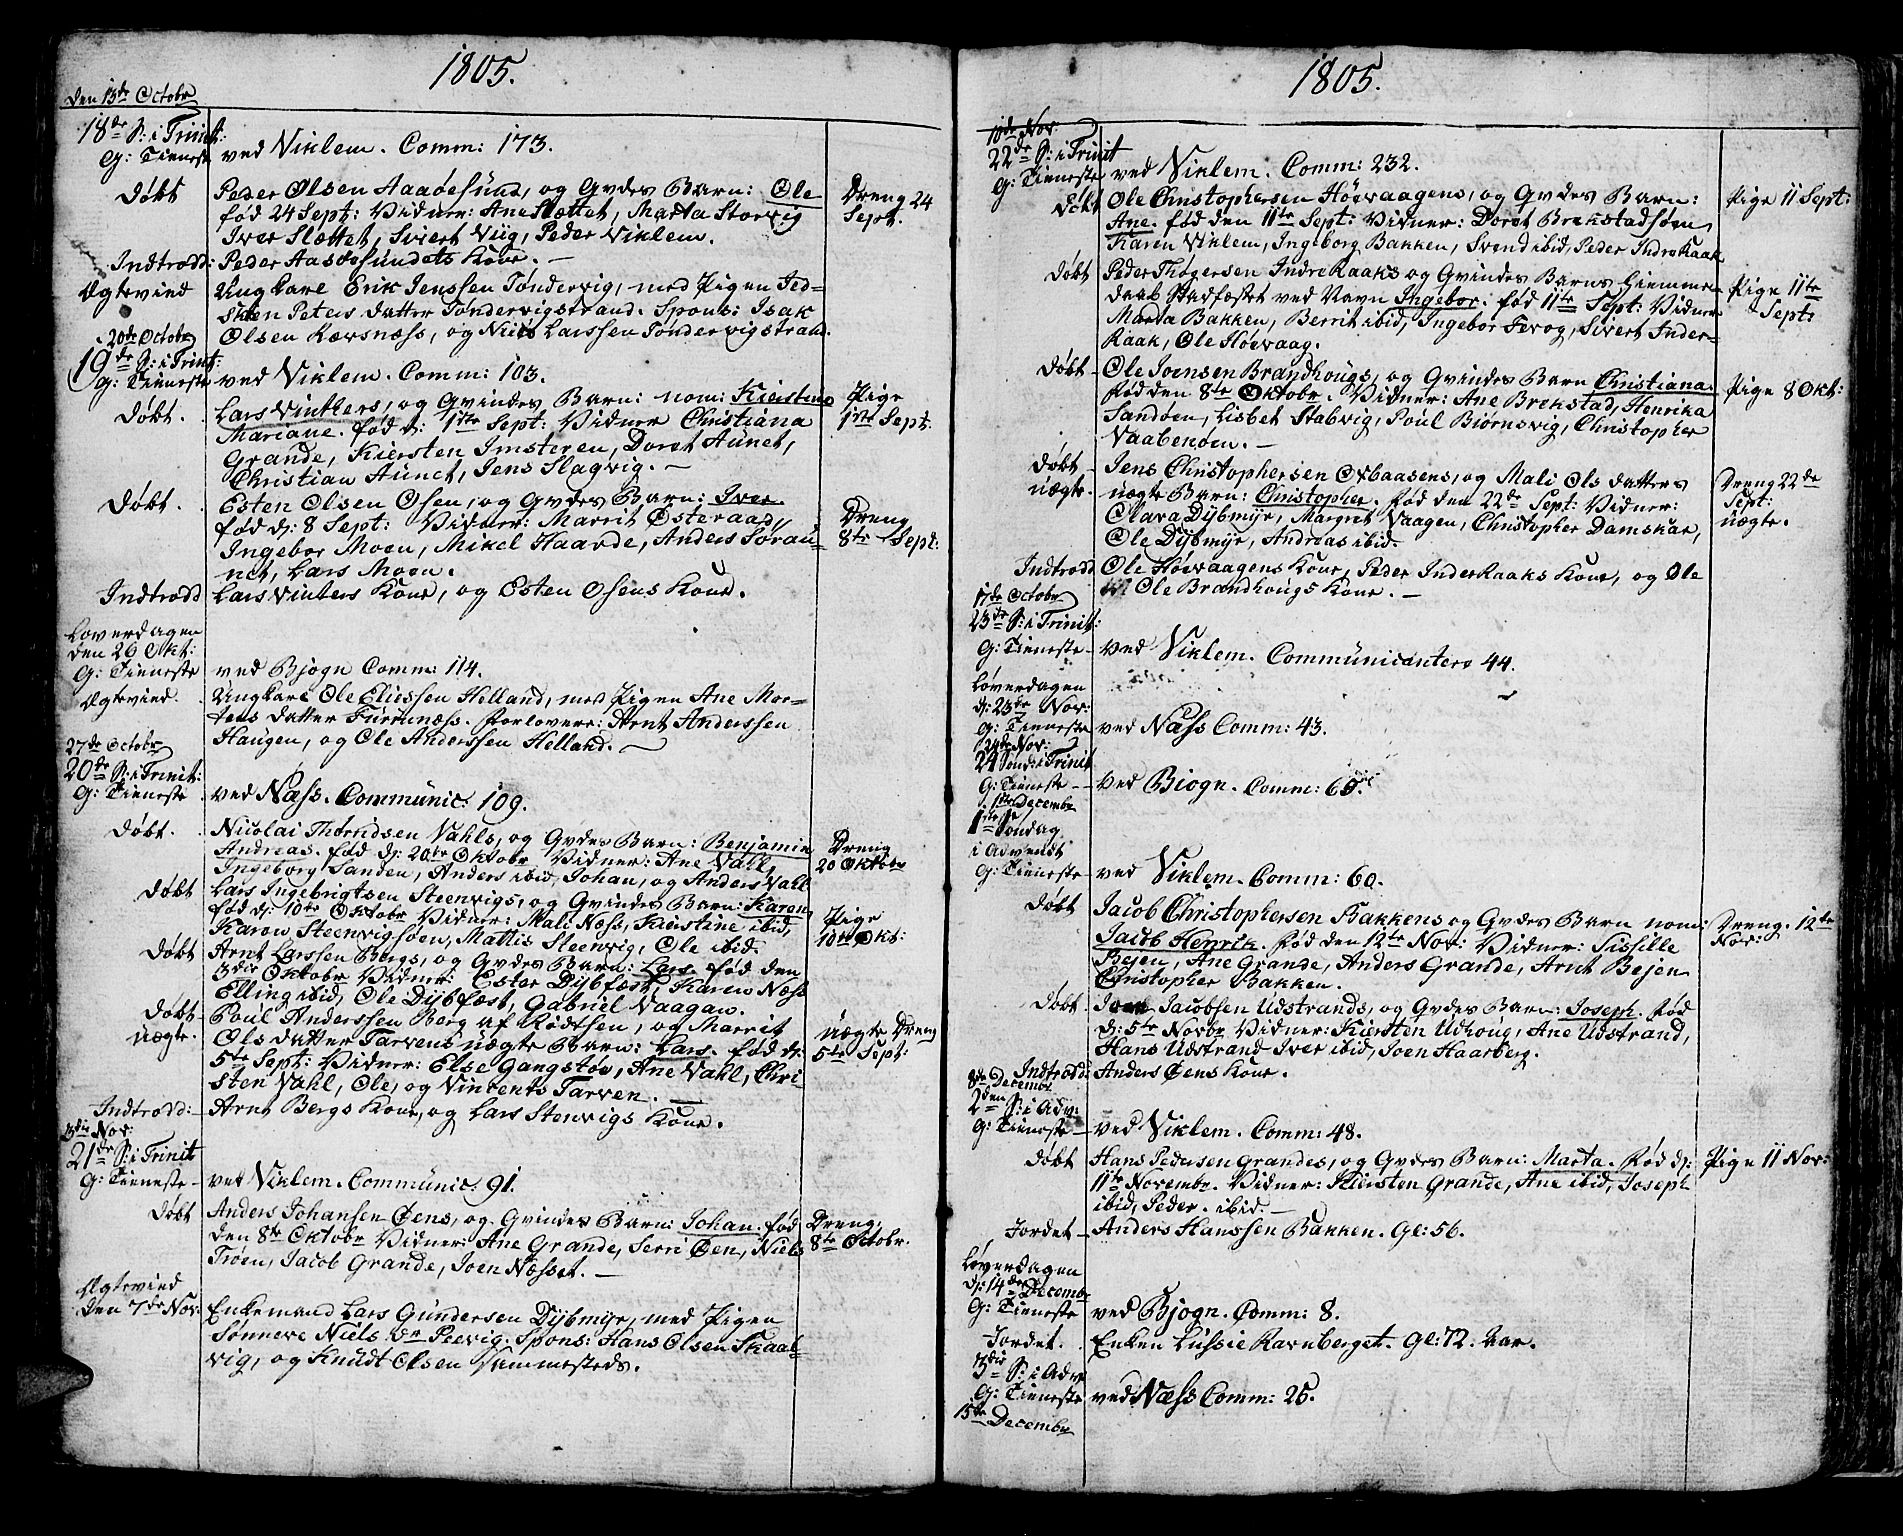 1805.
Den 13de Octobr
18de S: i Trinit:
G: Tieneste ved Viklem. Comm: 173.
Døbt Peder Olsen Aaaøesund, og Qvdes Barn: Ole Dreng 24
fød 24 Sept: Vidner: Ane Slættet, Marta Storvig Sept.
Iver Slættet, Sivert Viig, Peder Viklem.
Indtrædd: Peder Aasøesundets Kone. —
Ægteviede Ungkarl Erik Jenssen Tøndervig, med Pigen Ted-
Peters datter Tøndervigstrand. Spons: Isak
20de Octobr Olsen Kersnæss, og Niels Larssen Tøndervigstrand.
19de S: i Trinit:
G: Tieneste ved Viklem. Comm: 103.
Døbt. Lars Vinthers, og Qvindes Barn: nom: Kiersten Pige
Mariane. fød d: 1ste Sept: Vidner Christiana 1ste Sept:
Grande, Kiersten Imsteren, Doret Aunet,
Christian Aunet, Jens Slagvig. —
Døbt. Esten Olsen Osen, og Qvdes Barn: Iver. Dreng
fød d: 8 Sept: Vidner: Marrit Østeraad, 8de Sept:
Ingebor Moen, Mikel Haarde, Anders Sørau-
net, Lars Moen.
Indtrædd Lars Vinters Kone, og Esten Osens Kone.
Løverdagen
den 26 Okt:
G: Tieneste ved Bjogn Comm: 114.
Ægteviede. Ungkarl Ole Eliessen Helland, med Pigen Ane Mor-
tens datter Furrunæss. Forlovere: Arnt Anderssen
Haugen, og Ole Anderssen Helland. —
27de Octobr
20de S: i Trinit:
G: Tieneste ved Næss. Communic: 109.
Døbt. Nicolai Thørridsen Vahls, og Qvdes Barn: Benjamin Dreng
Andreas. fød d: 20de Oktobr Vidner: Ane Vahl, 20 Oktobr
Ingeborg Sanden, Anders ibid, Johan, og Anders Vahl
Døbt Lars Ingebrigtsen Steenvigs, og Qvindes Barn: Karen
fød d: 10de Oktobr Vidner: Mali Næss, Kierstine ibid, Pige
Karen Steenvigsøen, Mattis Steenvig, Ole ibid. 10de Okt:
Døbt Arnt Larssen Bergs, og Qvdes Barn: Lars. fød den
3die Oktobr Vidner: Ester Dybfæst, Karen Næss
Elling ibid, Ole Dybfæst, Gabriel Vaagan.
Døbt Poul Anderssen Berg af Rødtsen, og Marrit
uægte. Ols datter Tarvens uægte Barn: Lars. fød d: uægte Dreng
5te Sept: Vidner: Else Gangstøe, Ane Vahl, Chri 5te Sept:
sten Vahl, Ole, og Vincents Tarven. —
Indtrædd: Arnt Bergs Kone, og Lars Stenvigs Kone.
3die Nov:
21de S: i Trinit
G: Tieneste ved Viklem. Communic: 91.
Døbt Anders Johansen Øens, og Qvindes Barn: Johan. fød Dreng
den 8de Oktobr Vidner: Ane Grande, Serri Øen, Niels 8de Octobr.
Trøen, Jacob Grande, Joen Næsset. —
Ægteviede
den 7de Nov: Enkemand Lars Gundersen Dybmyr, med Pigen
Sønneve Niels dr Peevig. Spons: Hans Olsen Skaal-
vig, og Knudt Olsen Sammesteds.
1805.
10de Nov:
22de S: i Trinit
G: Tieneste ved Viklem. Comm: 232.
Døbt Ole Christophersen Høevaagens, og Qvdes Barn: Pige 11 Sept:
Ane. fød den 11te Sept: Vidner: Doret Brekstadsøen
Karen Viklem, Ingeborg Bakken, Svend ibid, Peder Indre Raak
Døbt Peder Thøgersen Indre Raaks og Qvindes Barns Hiemme-
daab Stadfæstet ved Navn Ingebor. fød 11te Sept: Vidner Pige 11te
Marta Bakken, Berrit ibid, Ingebor Fevog, Sivert Inder- Sept:
Raak, Ole Høevaag.
Døbt Ole Joensen Brandhougs, og Qvindes Barn Christiana. Pige 8 Okt:
fød den 8de Oktobr. Vidner: Ane Brekstad, Henrika
Sandøen, Lisbet Stabvig, Poul Biørnsvig, Christopher
Vaabenøen. —
Døbt Jens Christophersen Oxbaasens, og Mali Ols datters Dreng 22de
uægte uægte Barn: Christopher. fød den 22de Sept: Vidner: Sept:
Clara Dybmyr, Margret Vaagen, Christopher Damskar, uægte.
Ole Dybmyr, Andreas ibid.
Indtrædd Ole Høevaagens Kone, Peder Inder Raaks Kone, og Ole
Ole Brandhougs Kone. —
17de Octobr
23de S: i Trinit:
G: Tieneste ved Viklem. Communicantere 44.
Løverdagen
d: 23de Nov:
G: Tieneste ved Næss Comm: 43.
24de Nov:
24 Sønd: i Trinit
G: Tieneste ved Biogn. Comm: 60.
1ste Decembr
1ste Søndag
i Advendt
G: Tieneste ved Viklem. Comm: 60.
Døbt Jacob Christophersen Bakkens og Qvdes Barn nom: Dreng. 12te
Jacob Henrik. fød den 12te Nov: Vidner: Sissille Nov:
Bejen, Ane Grande, Anders Grande, Arnt Bejen
Christopher Bakken.
Døbt. Joen Jacobsen Udstrands, og Qvdes Barn: Joseph. fød
d: 5te Novbr Vidner: Kiersten Udhoug, Ane Udstrand,
Hans Udstrand Iver ibid, Joen Haarberg.
Indtrædd: Anders Øens Kone.
8de Decembr
2den S: i Adv:
G: Tieneste ved Viklem. Comm: 48.
Døbt Hans Pedersen Grandes, og Qvdes Barn: Marta. fød d: Pige 11 Nov:
11te Novembr. Vidner: Kiersten Grande, Ane ibid, Joseph
ibid, Peder. ibid. —
Jordet Anders Hanssen Bakken. Gl: 56.
Løverdagen
d: 14de Decembr
G: Tieneste ved Bjogn. Comm: 8.
Jordet. Enken Lussie Ravnberget. Gl: 72. Aar.
3die S: i Adv:
G: Tieneste ved Næss Comm: 25.
15de Decembr